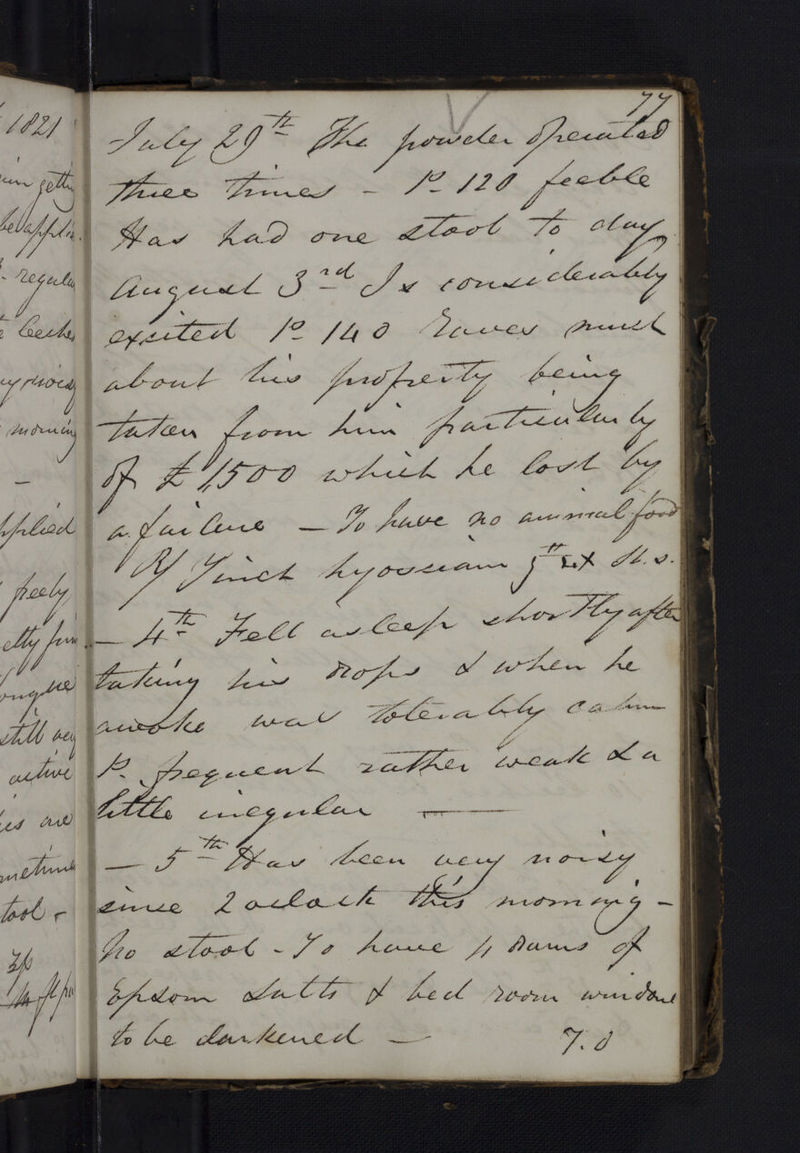 77
July 29th The powder operated
three times - P- 120 feeble
Has had one stool to day
August 3rd Is considerably
excited P- 140 Raves much
about his property being
taken from him particularly
of £1,500 which he lost by
a failure - To have no animal food
R/ Tinct hyosciam H.s.
- 4th Fell asleep shortly after
taking his drops & when he
awoke was tolerably calm
P. frequent rather weak & a
little irregular —
- 5th Has been very noisy
since 2 oclock this morning -
No stool - To have 4 drams of
Epsom Salts & bed room window
to be darkened -
7.0
1821
regular
leeches
morning
applied
freely
tongue
still very
active
are
sometimes
stool -